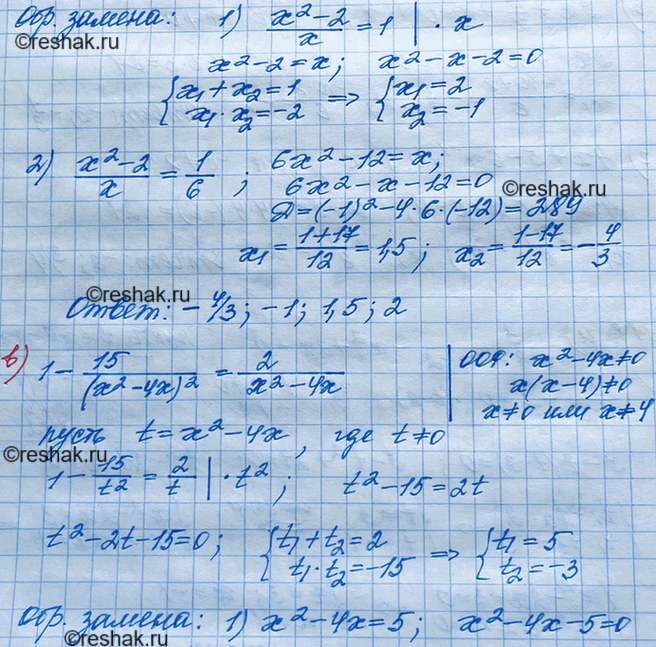 Обр. замена: 1) (x²-2)/x = 1 | · x
©reshak.ru
x²-2=x; x²-x-2=0
{x₁+x₂=1 x₁·x₂=-2 ⇒ {x₁=2 x₂=-1
2) (x²-2)/x = 1/6 ; 6x²-12=x;
6x²-x-12=0
©reshak.ru
Д=(-1)²-4·6·(-12)=289
x₁=(1+17)/12=1,5; x₂=(1-17)/12=-4/3
©reshak.ru
Ответ: -4/3; -1; 1,5; 2
в) 1-15/(x²-4x)²=2/(x²-4x)
ООФ: x²-4x≠0
x(x-4)≠0
x≠0 или x≠4
пусть t=x²-4x, где t≠0
©reshak.ru
1-15/t²=2/t | · t² ; t²-15=2t
t²-2t-15=0; {t₁+t₂=2 t₁·t₂=-15 ⇒ {t₁=5 t₂=-3
Обр. замена: 1) x²-4x=5; x²-4x-5=0
©reshak.ru